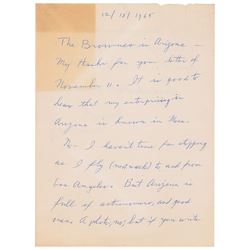 12/13/1965
The Brownies in Arizona —
My thanks for your letter of
November 11. It is good to
hear that my enterprising in
Arizona is known in
No — I haven't time for stopping
as I fly (most week) to and from
Los Angeles. But Arizona is
full of astronomers, and good
ones. A photo, no; but if you write